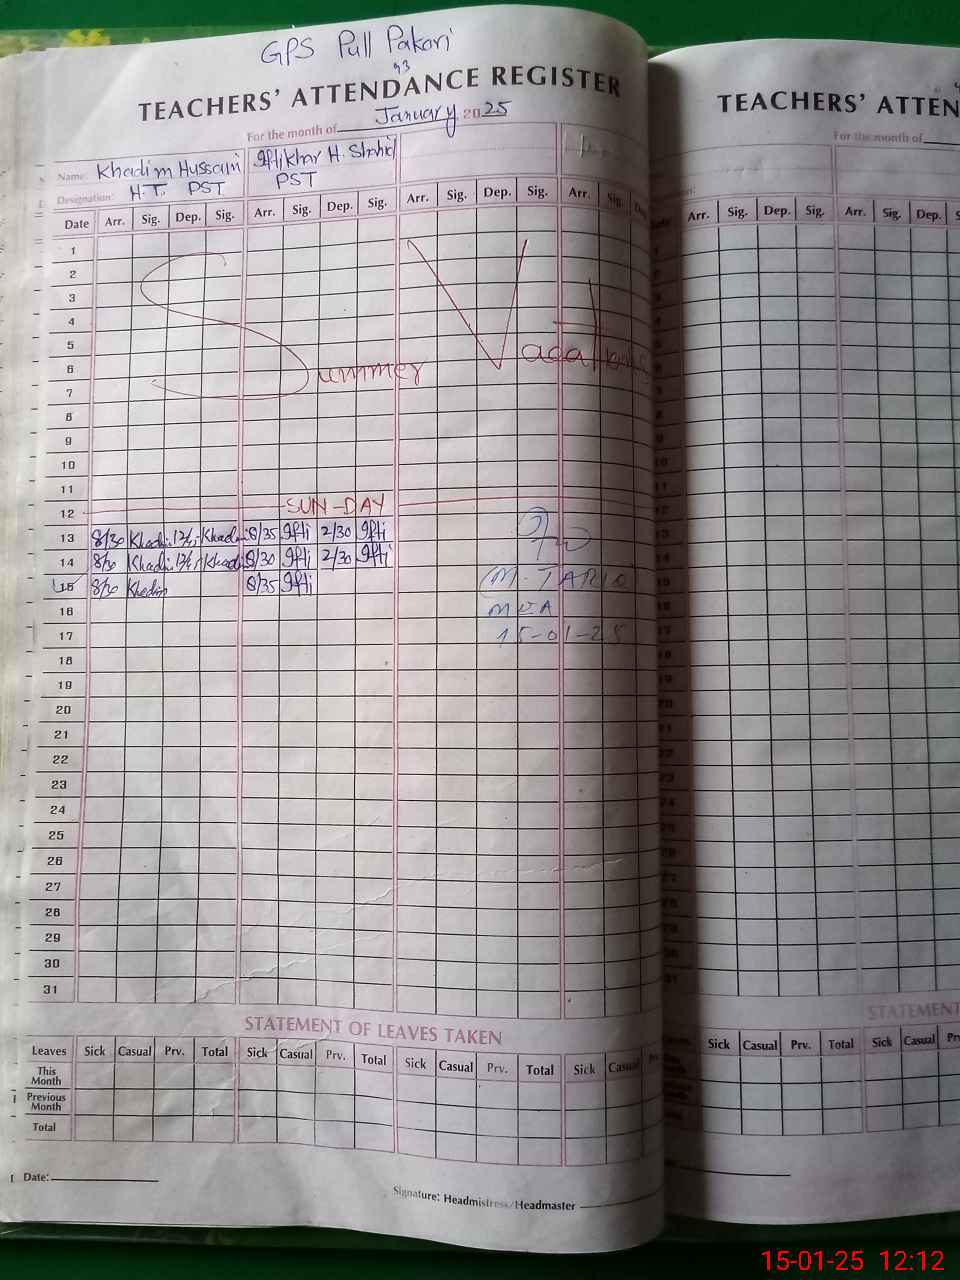 GPS Pull Pakori
TEACHERS' ATTENDANCE REGISTER
For the month of January 2025
Name: Khadim Hussain Iftikhar H. Shahid
Designation: H.T. PST PST
Date Arr. Sig. Dep. Sig. Arr. Sig. Dep. Sig. Arr. Sig. Dep. Sig. Arr. Sig.
1
2
3
4
5
6
Summer Vacations
7
8
9
10
11
12 SUN-DAY
13 8/30 8/35 Ifti 2/30 Ifti
14 8/30 8/30 Ifti 2/30 Ifti
15 8/30 Khadim 8/35 Ifti
(M. TARIQ
MEA
15-01-25
16
17
18
19
20
21
22
23
24
25
26
27
28
29
30
31
STATEMENT OF LEAVES TAKEN
Leaves Sick Casual Prv. Total Sick Casual Prv. Total Sick Casual Prv. Total Sick Casual
This Month
Previous Month
Total
Date:
Signature: Headmistress/Headmaster
TEACHERS' ATTEN
For the month of
Arr. Sig. Dep. Sig. Arr. Sig. Dep.
STATEMENT
Sick Casual Prv. Total Sick Casual
15-01-25 12:12